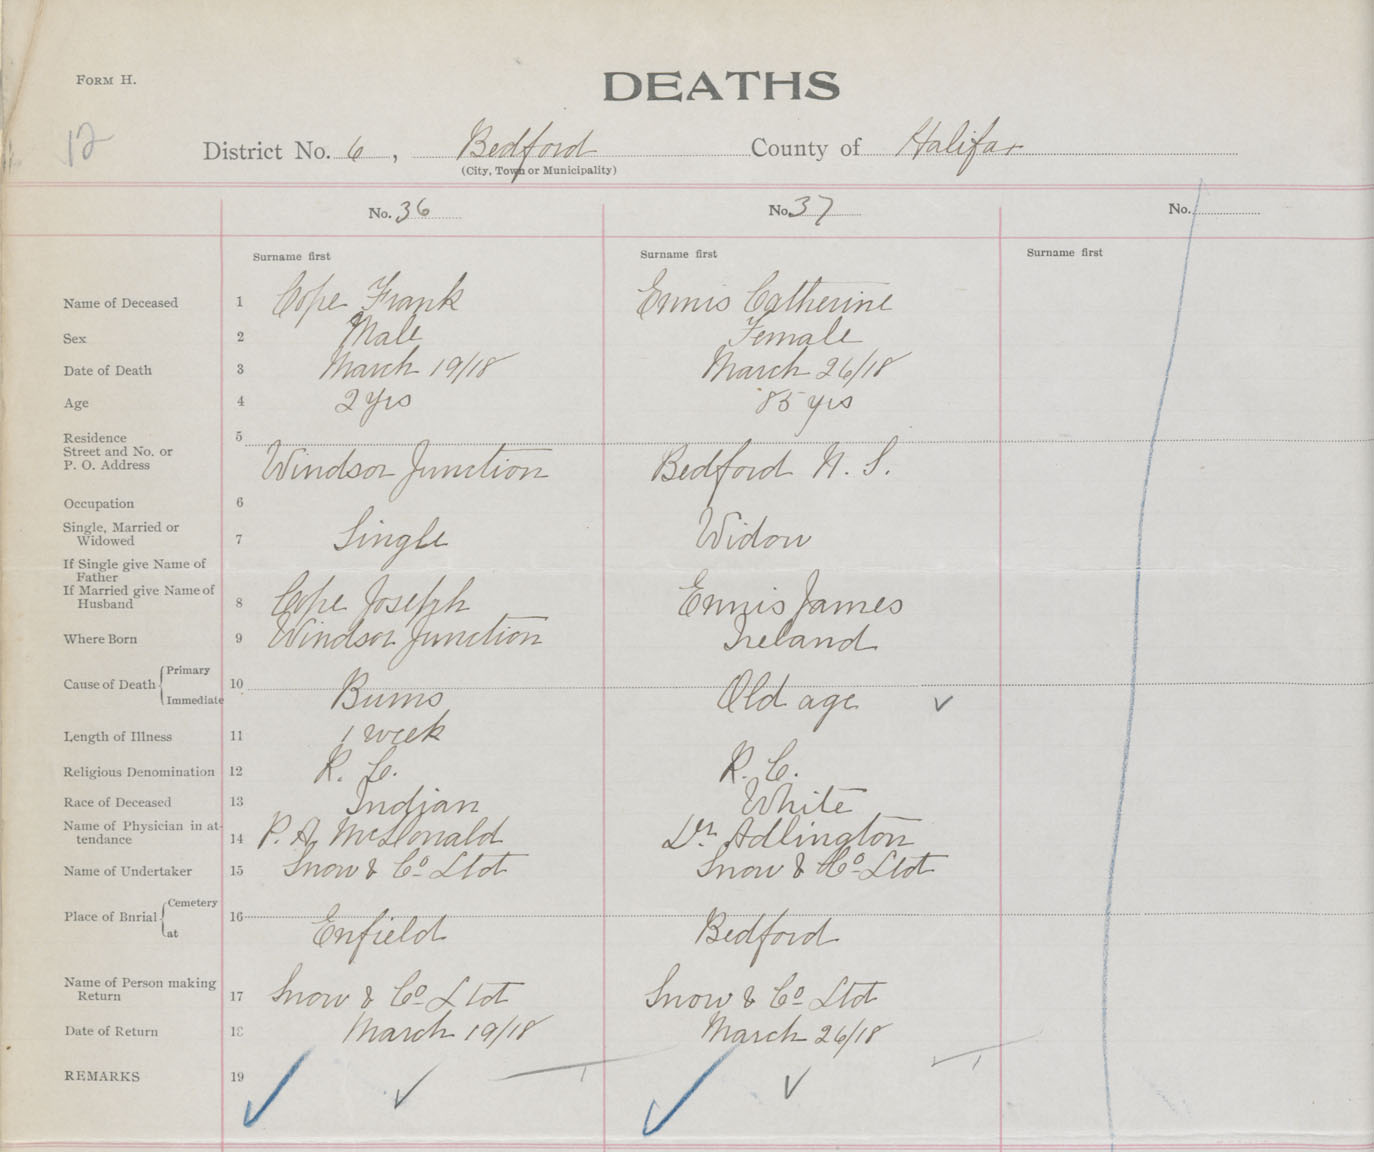 FORM H.
DEATHS
12
District No. 6, Bedford County of Halifax
(City, Town or Municipality)
No. 36 No. 37 No.
Surname first Surname first Surname first
Name of Deceased 1 Cope Frank Ennis Catherine
Sex 2 Male Female
Date of Death 3 March 19/18 March 26/18
Age 4 2 yrs 85 yrs
Residence 5
Street and No. or
P. O. Address Windsor Junction Bedford N. S.
Occupation 6
Single, Married or
Widowed 7 Single Widow
If Single give Name of
Father
If Married give Name of
Husband 8 Cope Joseph Ennis James
Where Born 9 Windsor Junction Ireland
Cause of Death Primary 10
Immediate Burns Old age
Length of Illness 11 1 week
Religious Denomination 12 R. C. R. C.
Race of Deceased 13 Indian White
Name of Physician in at-
tendance 14 P. A. McDonald Dr. Adlington
Name of Undertaker 15 Snow & Co Ltd Snow & Co Ltd
Place of Burial Cemetery 16
at Enfield Bedford
Name of Person making
Return 17 Snow & Co Ltd Snow & Co Ltd
Date of Return 18 March 19/18 March 26/18
REMARKS 19